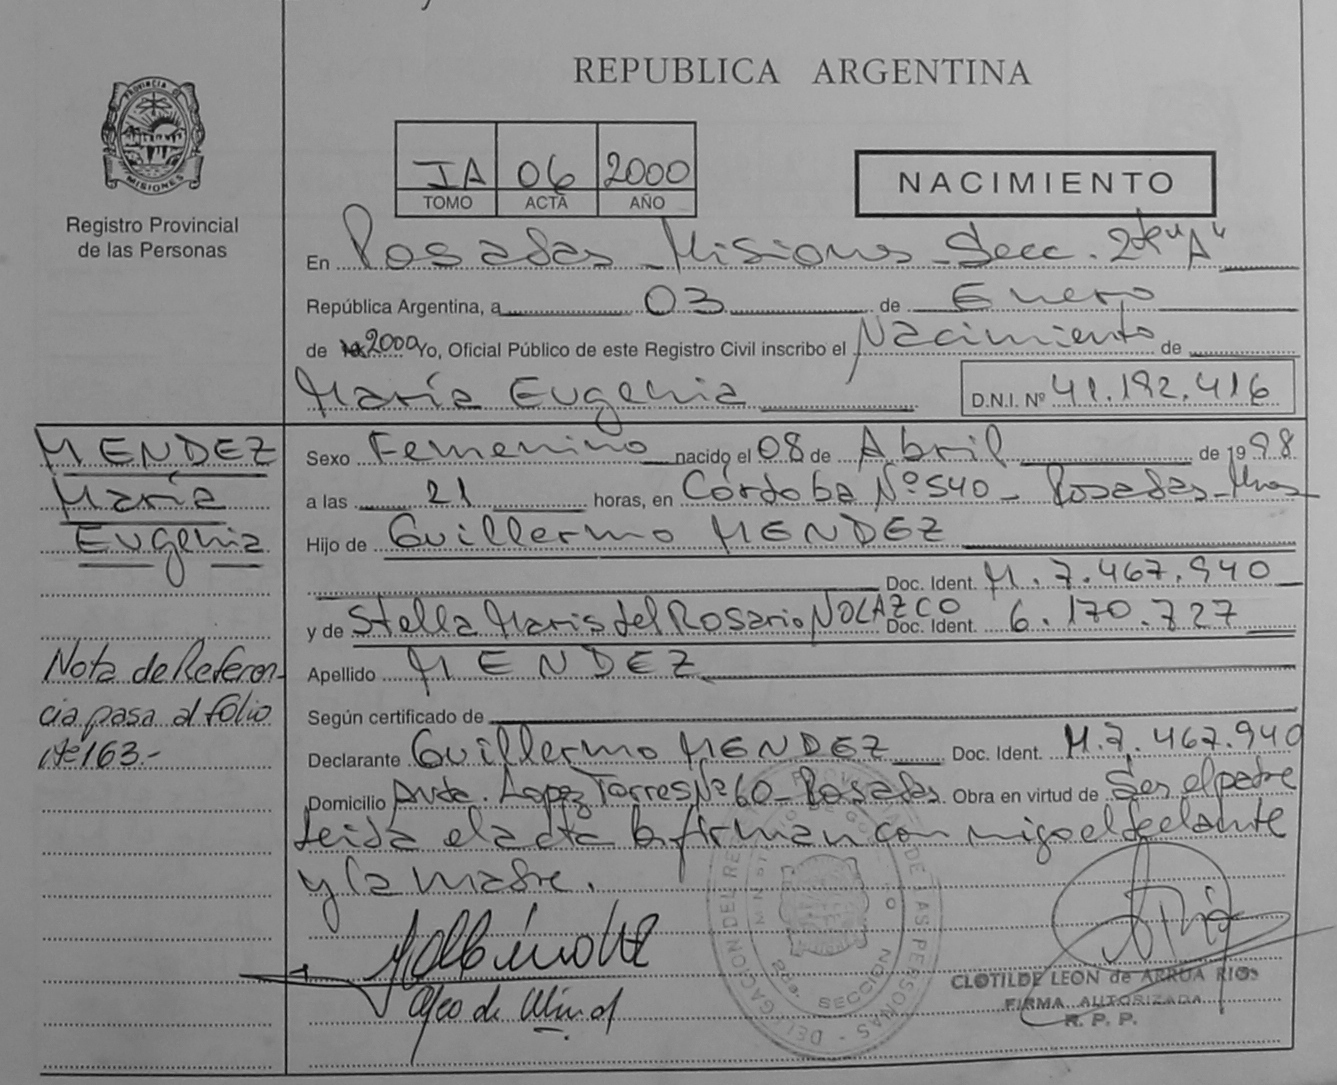 REPUBLICA ARGENTINA
PROVINCIA D MISIONES
Registro Provincial
de las Personas
IA 06 2000
TOMO ACTA AÑO
NACIMIENTO
En Posadas - Misiones - Secc. 2da "A"
República Argentina, a 03 de Enero
de 2000 Yo, Oficial Público de este Registro Civil inscribo el Nacimiento de
María Eugenia D.N.I. Nº 41.192.416
MENDEZ
María
Eugenia
Sexo Femenino nacido el 08 de Abril de 1998
a las 21 horas, en Córdoba Nº 540 - Posadas - Mnes
Hijo de Guillermo MENDEZ
Doc. Ident. M. 7.467.940
y de Stella Maris del Rosario NOLAZCO Doc. Ident. 6.170.727
Apellido MENDEZ
Según certificado de
Declarante Guillermo MENDEZ Doc. Ident. M.7.467.940
Domicilio Avda. Lopez Torres Nº 60 - Posadas. Obra en virtud de Ser el padre
Leida el acta la firman con migo el declante
y la madre.
Nota de Referen-
cia pasa al folio
Nº 163.-
2da. SECCION
CLOTILDE LEON de ARRUA RIOS
FIRMA AUTORIZADA
R. P. P.